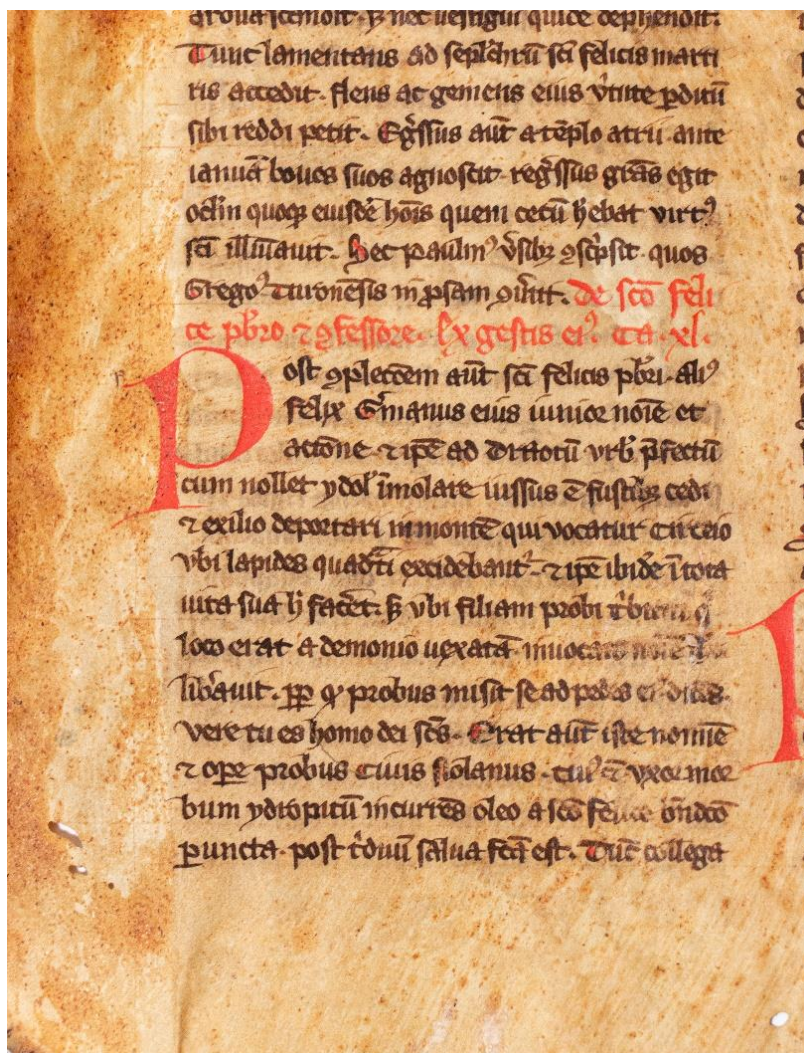 nec uestigiū quidē dephendit.
Tunc lamentans ad seplchrū sc̄i felicis marti
ris accedit. flens ac gemens eius v̓tute ꝑditū
sibi reddi petit. Egr̄ssus aūt a tēplo atrii ante
ianuā boues suos agnoscit. regr̄ssus gr̄as egit
ocl̄m quoqꝫ eiusdē hōis quem cecū hēbat virtꝰ
sc̄i illūauit. Hec Paulinꝰ v̓sibꝫ ꝯsc̓psit. quos
Gregoꝰ Turonēsis in ꝓsam ꝯu̓tit. de sc̄o feli
ce pb̄ro ⁊ ꝯfessore. Ex gestis eiꝰ. Ca. xl.
Post ꝯplecōem aūt sc̄i felicis pb̄ri. aliꝰ
felix G̓manus eius iunior noīe et
actione. ⁊ ipē ad Dracocū vrb̓ p̄fectū
cum nollet ydol̓ īmolare iussus ē fustibꝫ cedi
⁊ exilio deportari in montē qui vocatur Circeio
vbi lapides quadr̄ti excidebant̓. ⁊ ipē ibidē ī tota
uita sua h̄ facēt. sꝫ vbi filiam probi t̓buni
loco erat a demonio uexatā inuocato noīe
lib̓auit. ꝓꝑ qꝫ probus misit se ad pedes eiꝰ dicēs.
vere tu es homo dei sc̄s. Erat aūt iste nomīe
⁊ oꝑe probus Ciuis Nolanus. cuiꝰ vxor mor
bum ydropicū incurrēs oleo a sc̄o felice bn̄dc̄o
ꝑuncta. post t̓duū salua fc̄a est. Tūc collega